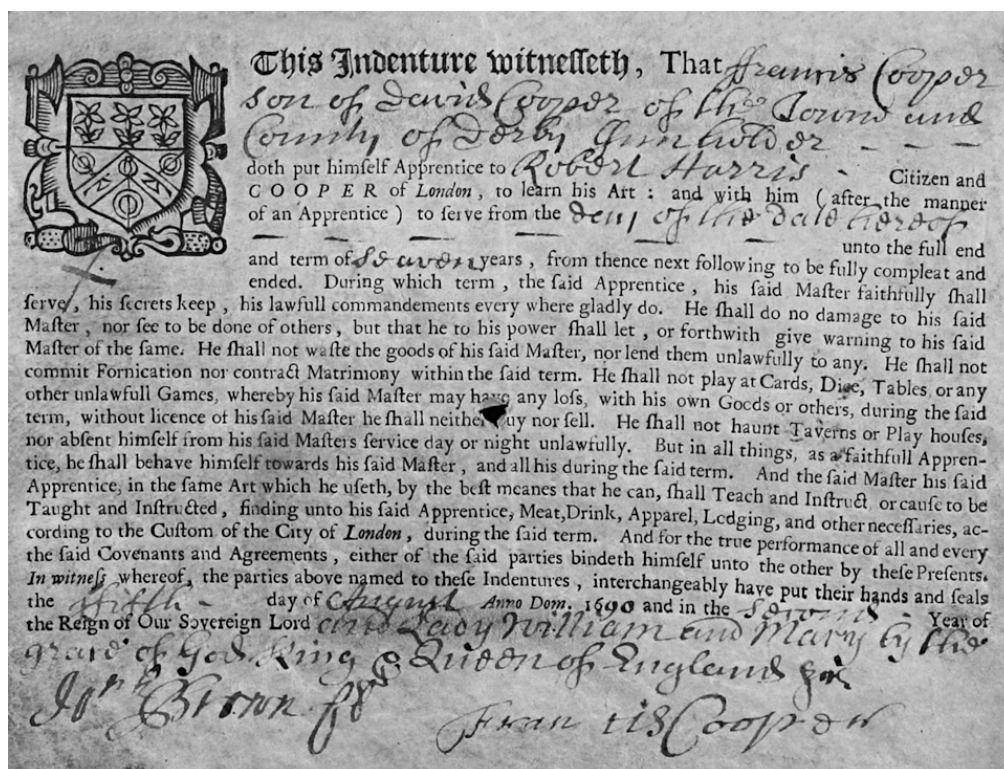 This Indenture witneſſeth, That ffrancis Cooper
son of David Cooper of the Towne and
County of Derby
doth put himſelf Apprentice to Robert Harris - Citizen and
COOPER of London, to learn his Art: and with him (after the manner
of an Apprentice) to ſerve from the Day of the date hereof
unto the full end
and term of Seaven years, from thence next following to be fully compleat and
ended. During which term, the ſaid Apprentice, his ſaid Maſter faithfully ſhall
ſerve, his ſecrets keep, his lawfull commandements every where gladly do. He ſhall do no damage to his ſaid
Maſter, nor ſee to be done of others, but that he to his power ſhall let, or forthwith give warning to his ſaid
Maſter of the ſame. He ſhall not waſte the goods of his ſaid Maſter, nor lend them unlawfully to any. He ſhall not
commit Fornication nor contract Matrimony within the ſaid term. He ſhall not play at Cards, Dice, Tables, or any
other unlawfull Games, whereby his ſaid Maſter may have any loſs, with his own Goods or others, during the ſaid
term, without licence of his ſaid Maſter he ſhall neither buy nor ſell. He ſhall not haunt Taverns or Play houſes,
nor abſent himſelf from his ſaid Maſters ſervice day or night unlawfully. But in all things, as a faithfull Appren-
tice, he ſhall behave himſelf towards his ſaid Maſter, and all his during the ſaid term. And the ſaid Maſter his ſaid
Apprentice, in the ſame Art which he uſeth, by the beſt meanes that he can, ſhall Teach and Inſtruct, or cauſe to be
Taught and Inſtructed, finding unto his ſaid Apprentice, Meat, Drink, Apparel, Lodging, and other neceſſaries, ac-
cording to the Cuſtom of the City of London, during the ſaid term. And for the true performance of all and every
the ſaid Covenants and Agreements, either of the ſaid parties bindeth himſelf unto the other by theſe Preſents.
In witneſs whereof, the parties above named to theſe Indentures, interchangeably have put their hands and ſeals
the ffifth - day of August Anno Dom. 1690 and in the Second Year of
the Reign of Our Sovereign Lord and Lady William and Mary by the
grace of God King & Queen of England
Brown Francis Cooper